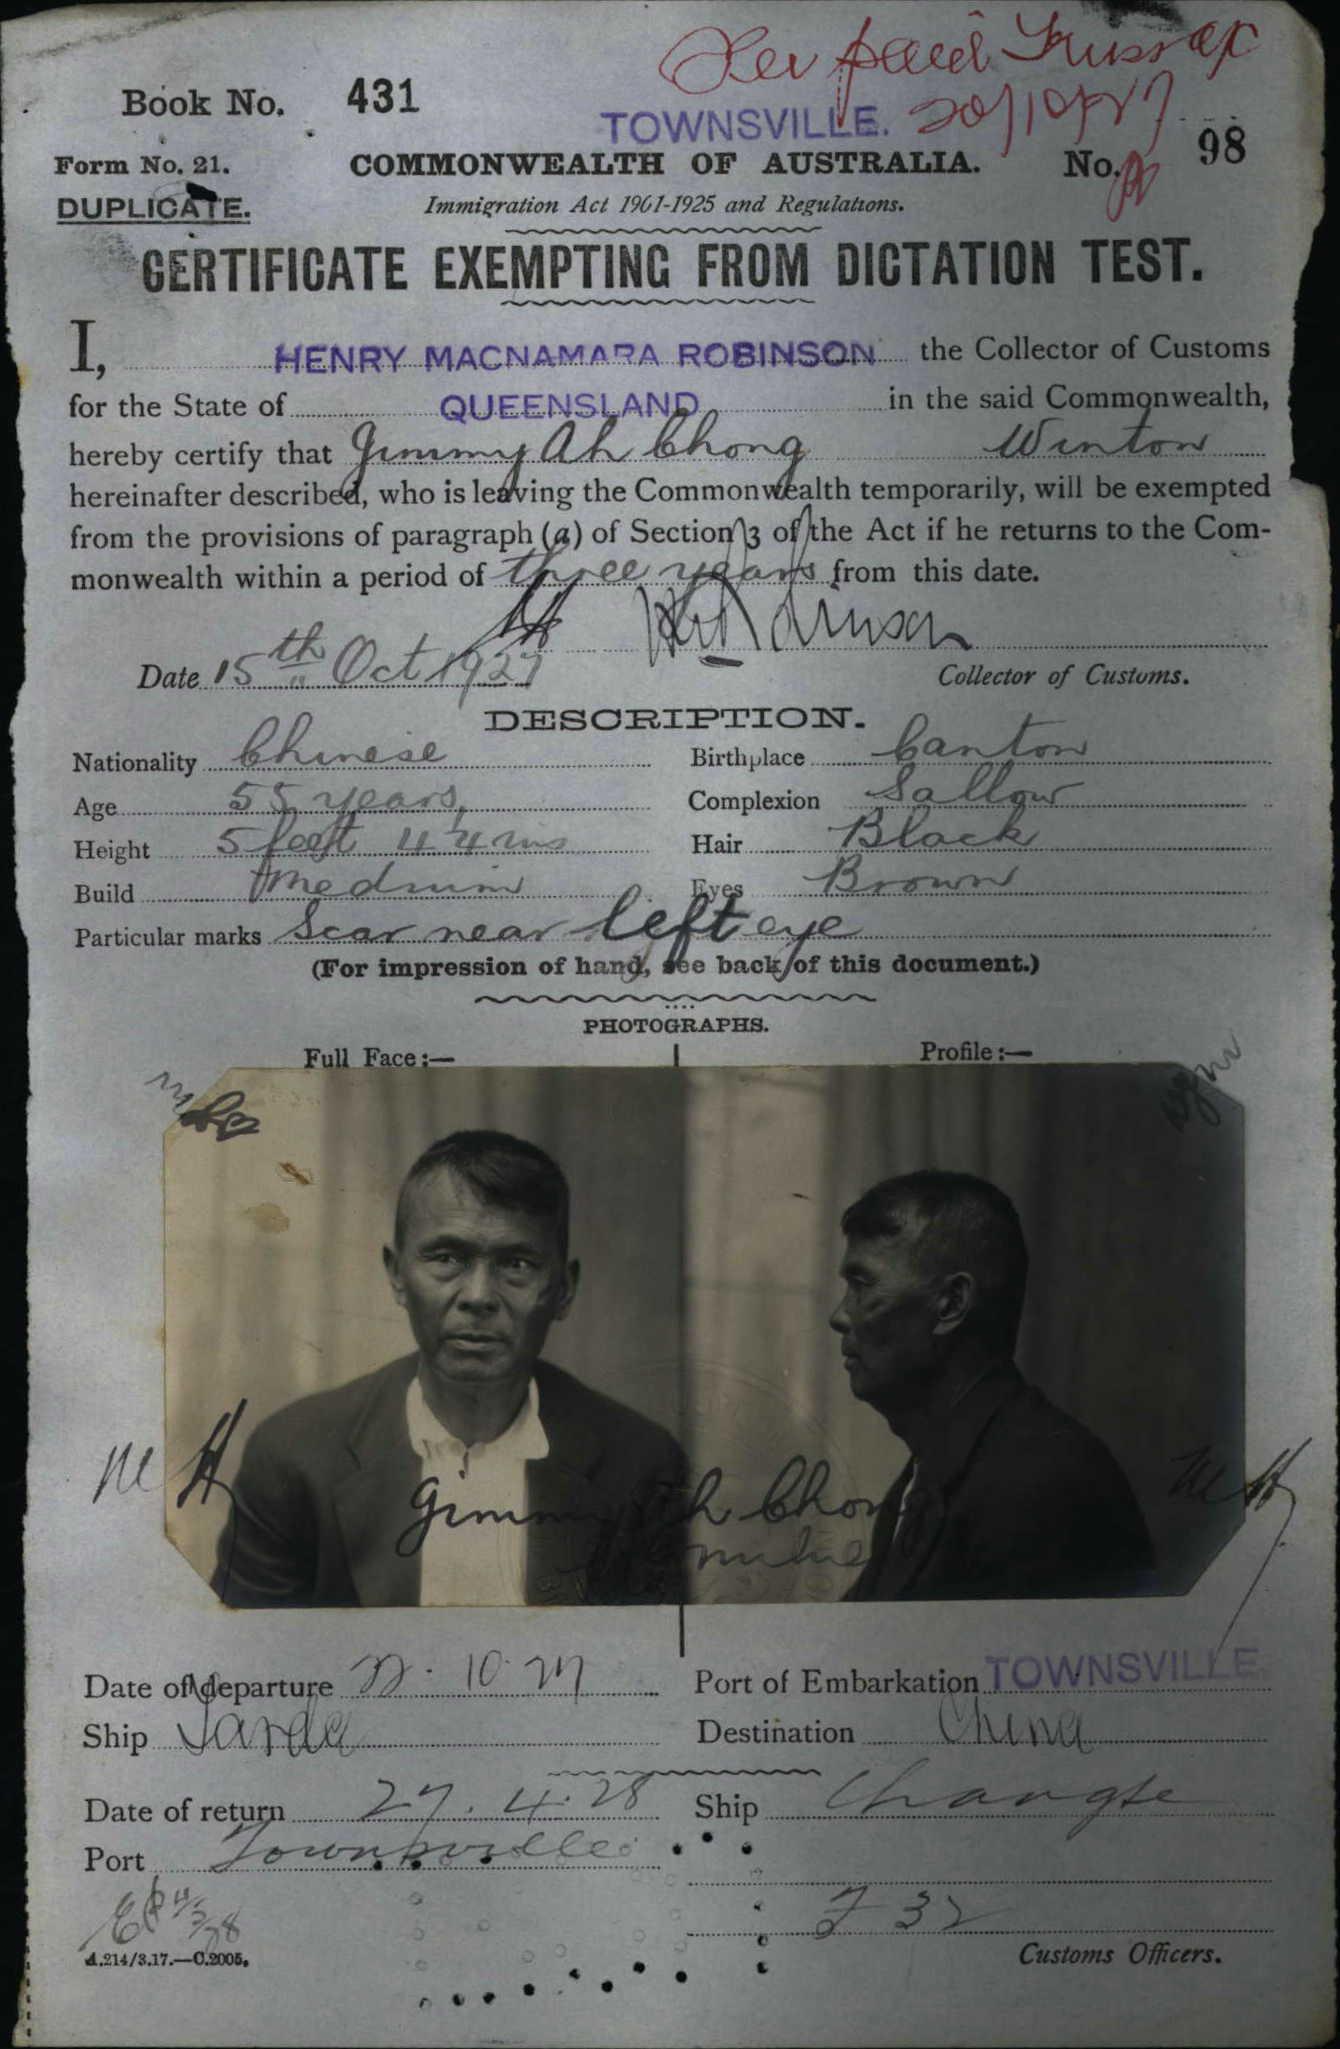 Book No. 431
TOWNSVILLE. 20/10/27
Form No. 21. COMMONWEALTH OF AUSTRALIA. No. 98
DUPLICATE. Immigration Act 1901-1925 and Regulations.
CERTIFICATE EXEMPTING FROM DICTATION TEST.
I, HENRY MACNAMARA ROBINSON the Collector of Customs
for the State of QUEENSLAND in the said Commonwealth,
hereby certify that Jimmy Ah Chong Winton
hereinafter described, who is leaving the Commonwealth temporarily, will be exempted
from the provisions of paragraph (a) of Section 3 of the Act if he returns to the Com-
monwealth within a period of three years from this date.
Date 15th Oct 1927 Collector of Customs.
DESCRIPTION.
Nationality Chinese Birthplace Canton
Age 55 years, Complexion Sallow
Height 5 feet 4¼ ins Hair Black
Build Medium Eyes Brown
Particular marks Scar near left eye
(For impression of hand, see back of this document.)
PHOTOGRAPHS.
Full Face:— Profile:—
Jimmy Ah Chong
Date of departure 22. 10. 27 Port of Embarkation TOWNSVILLE
Ship Tarda Destination China
Date of return 27. 4. 28 Ship Changte
Port Townsville
F 32
A.214/3.17.—C.2005. Customs Officers.